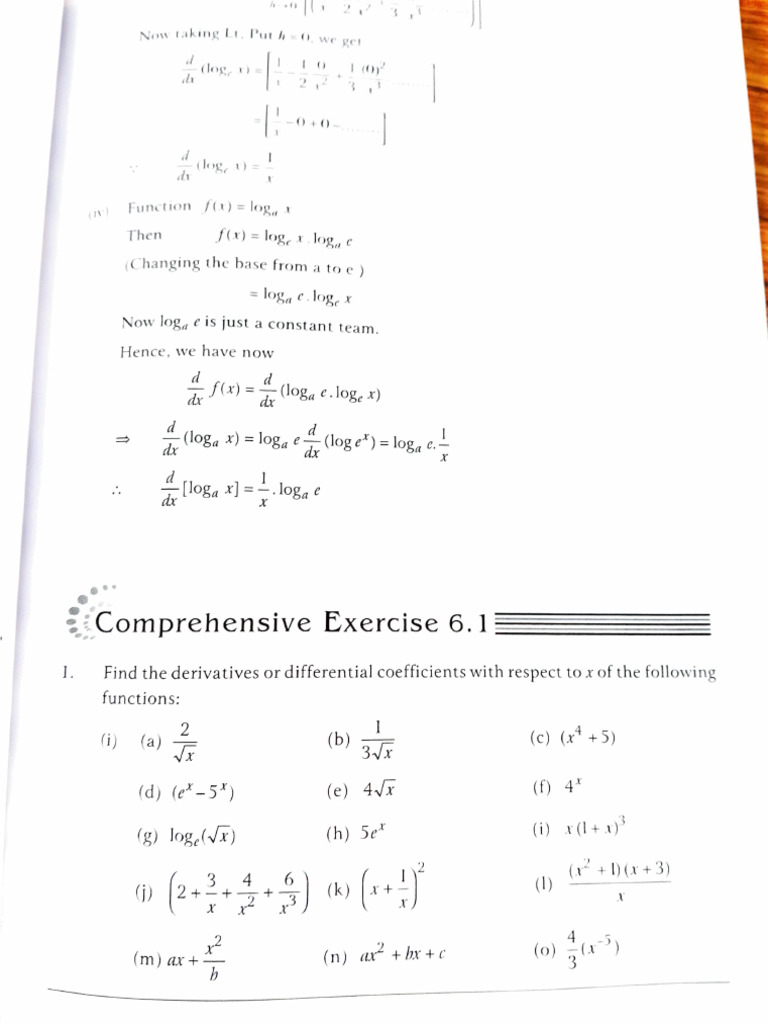 h→0
Now taking Lt. Put h = 0, we get
d/dx (logₑ x) = [1/x − 1/2 0/x² + 1/3 (0)²/x³ ........]
= [1/x − 0 + 0 − ........]
∵ d/dx (logₑ x) = 1/x
(iv) Function f(x) = logₐ x
Then f(x) = logₑ x . logₐ e
(Changing the base from a to e )
= logₐ e . logₑ x
Now logₐ e is just a constant team.
Hence, we have now
d/dx f(x) = d/dx (logₐ e . logₑ x)
⇒ d/dx (logₐ x) = logₐ e d/dx (log eˣ) = logₐ e. 1/x
∴ d/dx [logₐ x] = 1/x . logₐ e
Comprehensive Exercise 6.1
1. Find the derivatives or differential coefficients with respect to x of the following
functions:
(i) (a) 2/√x (b) 1/3√x (c) (x⁴ + 5)
(d) (eˣ − 5ˣ) (e) 4√x (f) 4ˣ
(g) logₑ(√x) (h) 5eˣ (i) x(1 + x)³
(j) (2 + 3/x + 4/x² + 6/x³) (k) (x + 1/x)² (l) (x² + 1)(x + 3)/x
(m) ax + x²/b (n) ax² + bx + c (o) 4/3 (x⁻⁵)